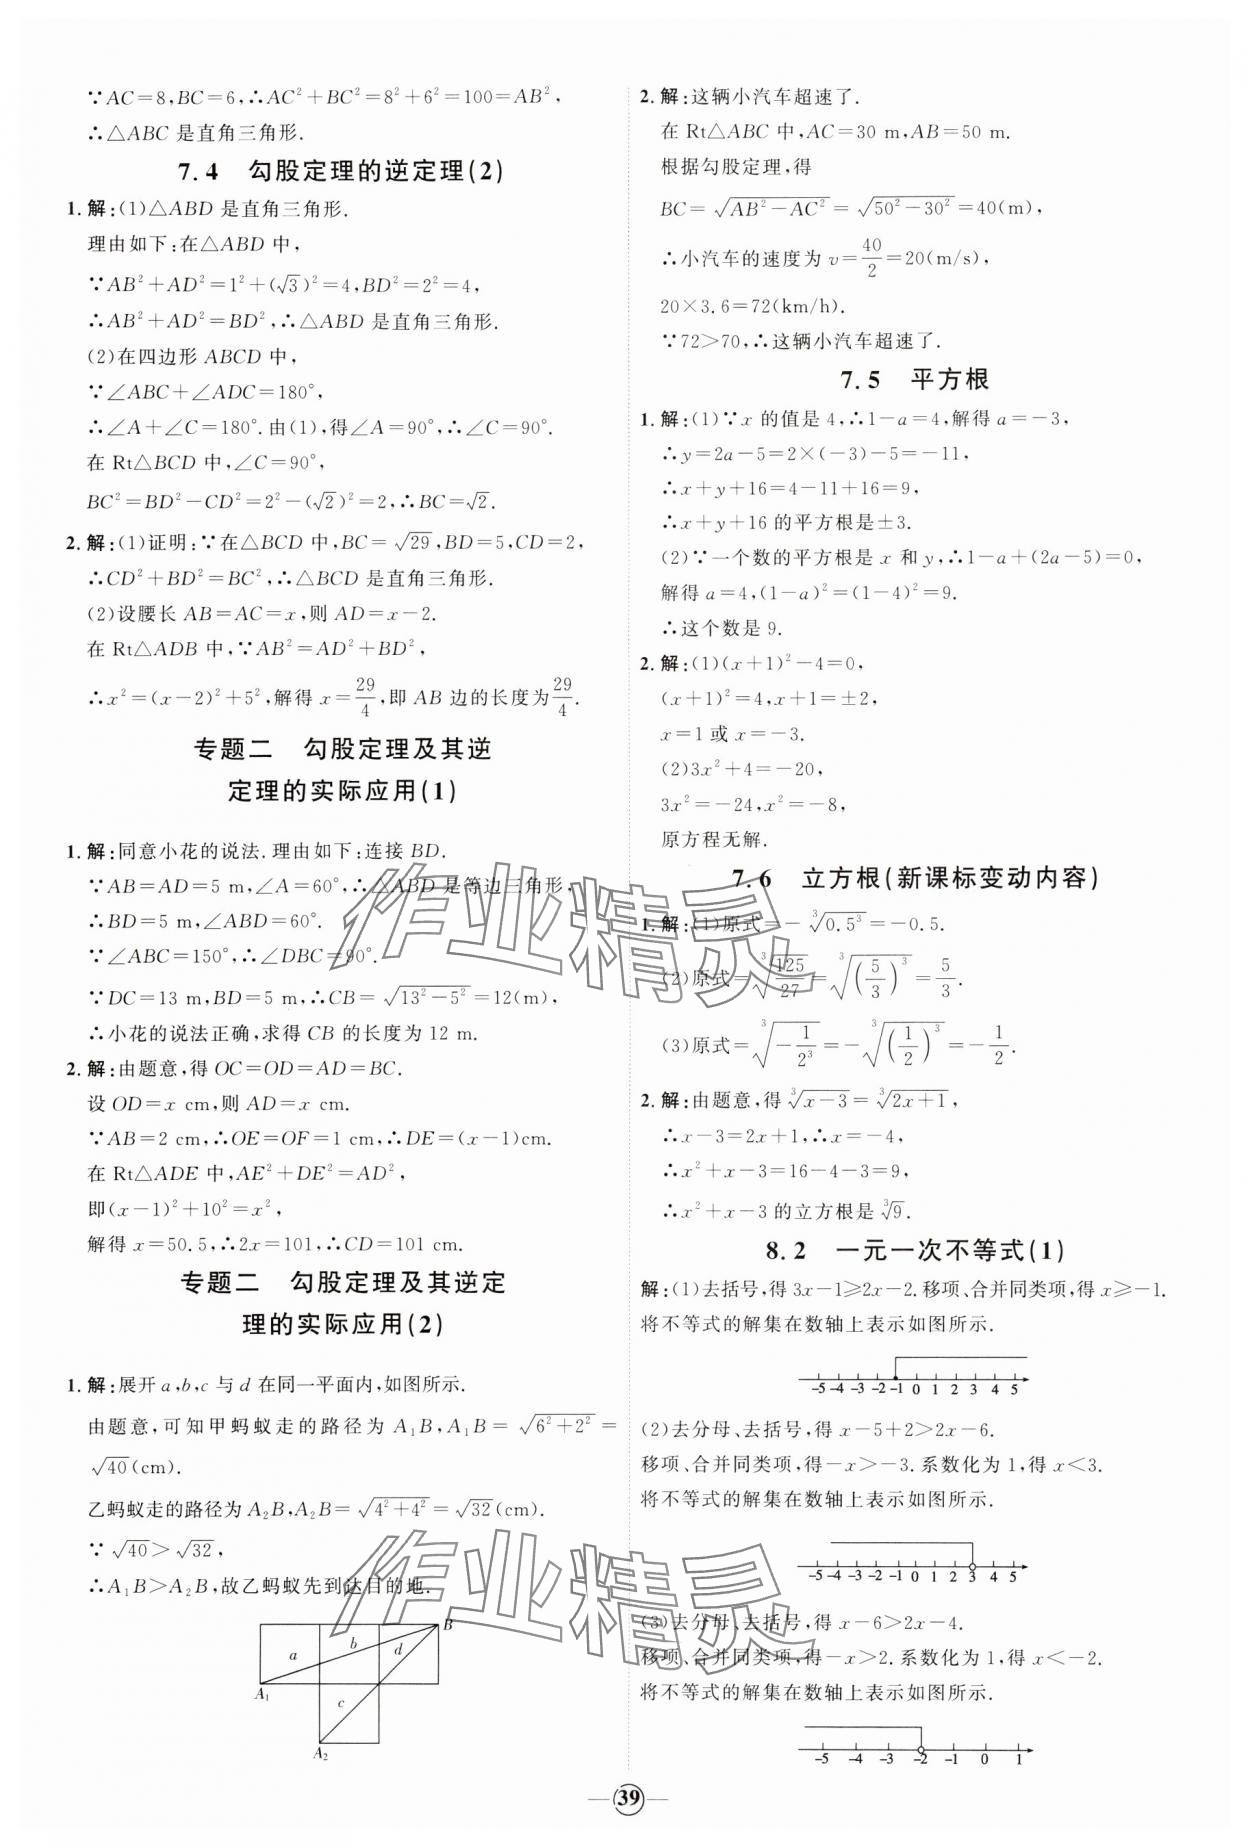 ∵AC=8,BC=6,∴AC²+BC²=8²+6²=100=AB²,
∴△ABC 是直角三角形.
7.4 勾股定理的逆定理(2)
1. 解:(1)△ABD 是直角三角形.
理由如下:在△ABD 中,
∵AB²+AD²=1²+(√3)²=4,BD²=2²=4,
∴AB²+AD²=BD²,∴△ABD 是直角三角形.
(2)在四边形 ABCD 中,
∵∠ABC+∠ADC=180°,
∴∠A+∠C=180°.由(1),得∠A=90°,∴∠C=90°.
在 Rt△BCD 中,∠C=90°,
BC²=BD²-CD²=2²-(√2)²=2,∴BC=√2.
2. 解:(1)证明:∵在△BCD 中,BC=√29,BD=5,CD=2,
∴CD²+BD²=BC²,∴△BCD 是直角三角形.
(2)设腰长 AB=AC=x,则 AD=x-2.
在 Rt△ADB 中,∵AB²=AD²+BD²,
∴x²=(x-2)²+5²,解得 x=29/4,即 AB 边的长度为29/4.
专题二 勾股定理及其逆
定理的实际应用(1)
1. 解:同意小花的说法.理由如下:连接 BD.
∵AB=AD=5 m,∠A=60°,∴△ABD 是等边三角形,
∴BD=5 m,∠ABD=60°.
∵∠ABC=150°,∴∠DBC=90°.
∵DC=13 m,BD=5 m,∴CB=√(13²-5²)=12(m),
∴小花的说法正确,求得 CB 的长度为 12 m.
2. 解:由题意,得 OC=OD=AD=BC.
设 OD=x cm,则 AD=x cm.
∵AB=2 cm,∴OE=OF=1 cm,∴DE=(x-1)cm.
在 Rt△ADE 中,AE²+DE²=AD²,
即(x-1)²+10²=x²,
解得 x=50.5,∴2x=101,∴CD=101 cm.
专题二 勾股定理及其逆定
理的实际应用(2)
1. 解:展开 a,b,c 与 d 在同一平面内,如图所示.
由题意,可知甲蚂蚁走的路径为 A₁B,A₁B=√(6²+2²)=
√40(cm).
乙蚂蚁走的路径为 A₂B,A₂B=√(4²+4²)=√32(cm).
∵√40>√32,
∴A₁B>A₂B,故乙蚂蚁先到达目的地.
B
a b d
A₁
c
A₂
2. 解:这辆小汽车超速了.
在 Rt△ABC 中,AC=30 m,AB=50 m.
根据勾股定理,得
BC=√(AB²-AC²)=√(50²-30²)=40(m),
∴小汽车的速度为 v=40/2=20(m/s),
20×3.6=72(km/h).
∵72>70,∴这辆小汽车超速了.
7.5 平方根
1. 解:(1)∵x 的值是 4,∴1-a=4,解得 a=-3,
∴y=2a-5=2×(-3)-5=-11,
∴x+y+16=4-11+16=9,
∴x+y+16 的平方根是±3.
(2)∵一个数的平方根是 x 和 y,∴1-a+(2a-5)=0,
解得 a=4,(1-a)²=(1-4)²=9.
∴这个数是 9.
2. 解:(1)(x+1)²-4=0,
(x+1)²=4,x+1=±2,
x=1 或 x=-3.
(2)3x²+4=-20,
3x²=-24,x²=-8,
原方程无解.
7.6 立方根(新课标变动内容)
1. 解:(1)原式=-∛(0.5³)=-0.5.
(2)原式=∛(125/27)=∛((5/3)³)=5/3.
(3)原式=∛(-1/2³)=-∛((1/2)³)=-1/2.
2. 解:由题意,得∛(x-3)=∛(2x+1),
∴x-3=2x+1,∴x=-4,
∴x²+x-3=16-4-3=9,
∴x²+x-3 的立方根是∛9.
8.2 一元一次不等式(1)
解:(1)去括号,得 3x-1≥2x-2.移项、合并同类项,得 x≥-1.
将不等式的解集在数轴上表示如图所示.
-5 -4 -3 -2 -1 0 1 2 3 4 5
(2)去分母、去括号,得 x-5+2>2x-6.
移项、合并同类项,得-x>-3.系数化为 1,得 x<3.
将不等式的解集在数轴上表示如图所示.
-5 -4 -3 -2 -1 0 1 2 3 4 5
(3)去分母、去括号,得 x-6>2x-4.
移项、合并同类项,得-x>2.系数化为 1,得 x<-2.
将不等式的解集在数轴上表示如图所示.
-5 -4 -3 -2 -1 0 1
39
作业精灵
作业精灵